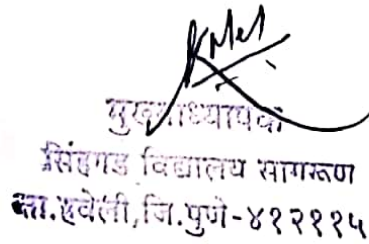 मुख्याध्यापक
सिंहगड विद्यालय सागरूण
ता.हवेली, जि.पुणे-४१२११५